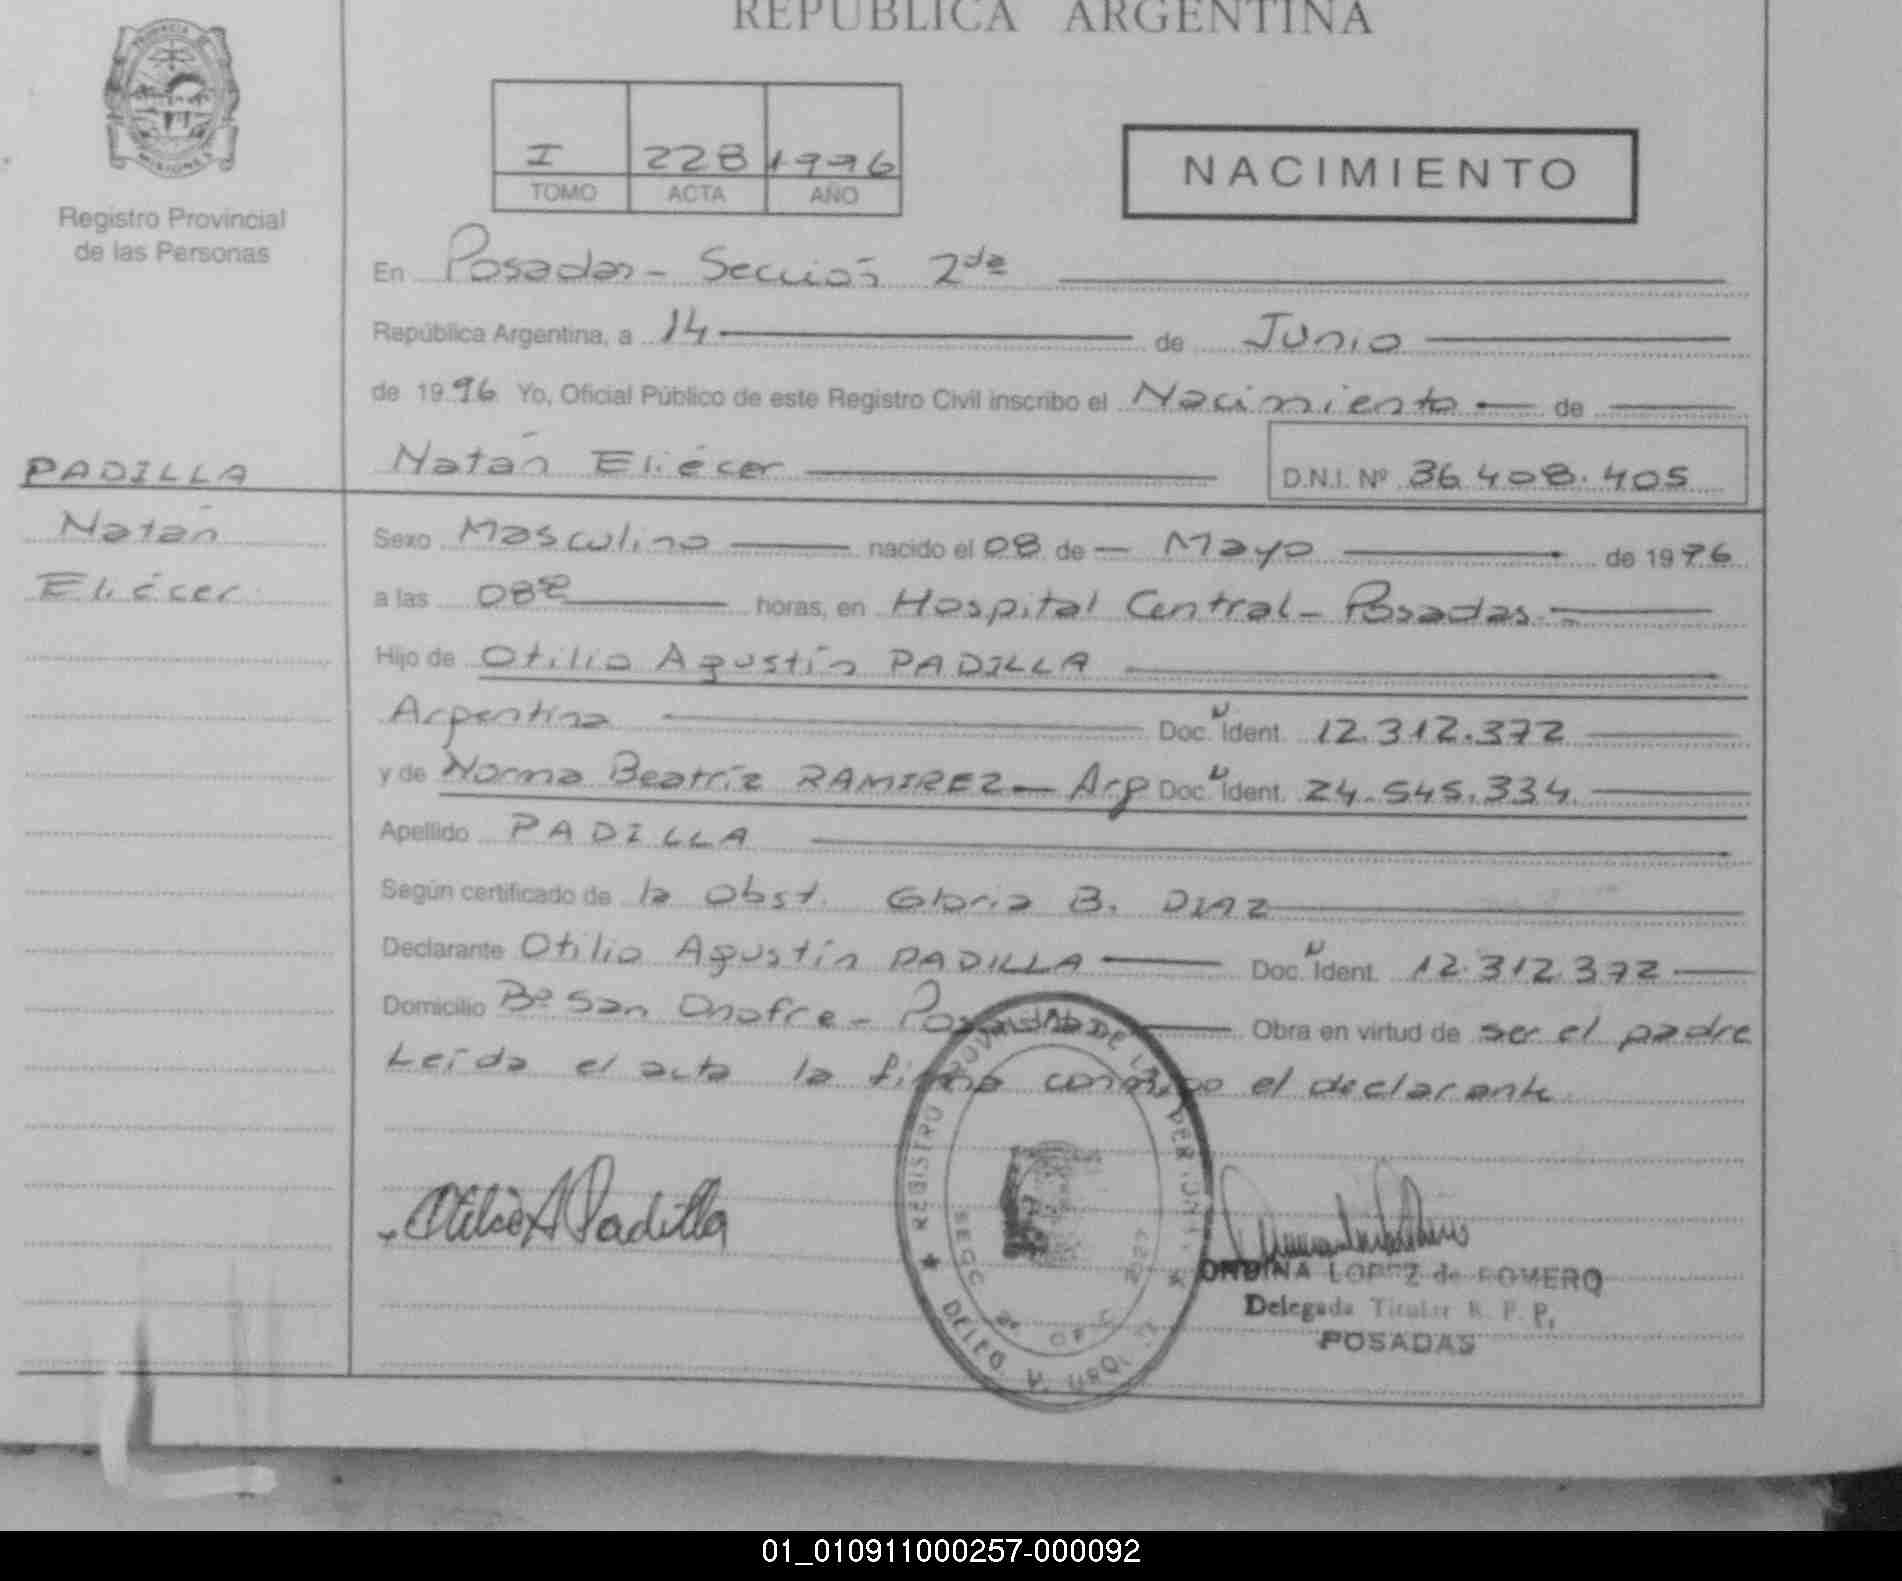 REPUBLICA ARGENTINA
PROVINCIA DE
MISIONES
Registro Provincial
de las Personas
I 228 1996
TOMO ACTA AÑO
NACIMIENTO
En Posadas - Sección 2da
República Argentina, a 14 de Junio
de 1996 Yo, Oficial Público de este Registro Civil inscribo el Nacimiento de
Natán Eliécer D.N.I. Nº 36.408.405
PADILLA
Natán
Eliécer
Sexo Masculino nacido el 08 de Mayo de 1996
a las 08 horas, en Hospital Central - Posadas.-
Hijo de Otilio Agustín PADILLA
Argentina Doc. Ident. 12.312.372
y de Norma Beatríz RAMIREZ - Arg Doc. Ident. 24.545.334
Apellido PADILLA
Según certificado de la Obst. Gloria B. DIAZ
Declarante Otilio Agustín PADILLA Doc. Ident. 12.312.372
Domicilio Bº San Onofre - Posadas Obra en virtud de ser el padre
Leída el acta la firma conmigo el declarante
Otilio A Padilla
REGISTRO PROVINCIAL DE LAS PERSONAS
SECC 2ª OFIC
DELEG.
ONDINA LOPEZ de ROMERO
Delegada Titular R. P. P.
POSADAS
01_010911000257-000092